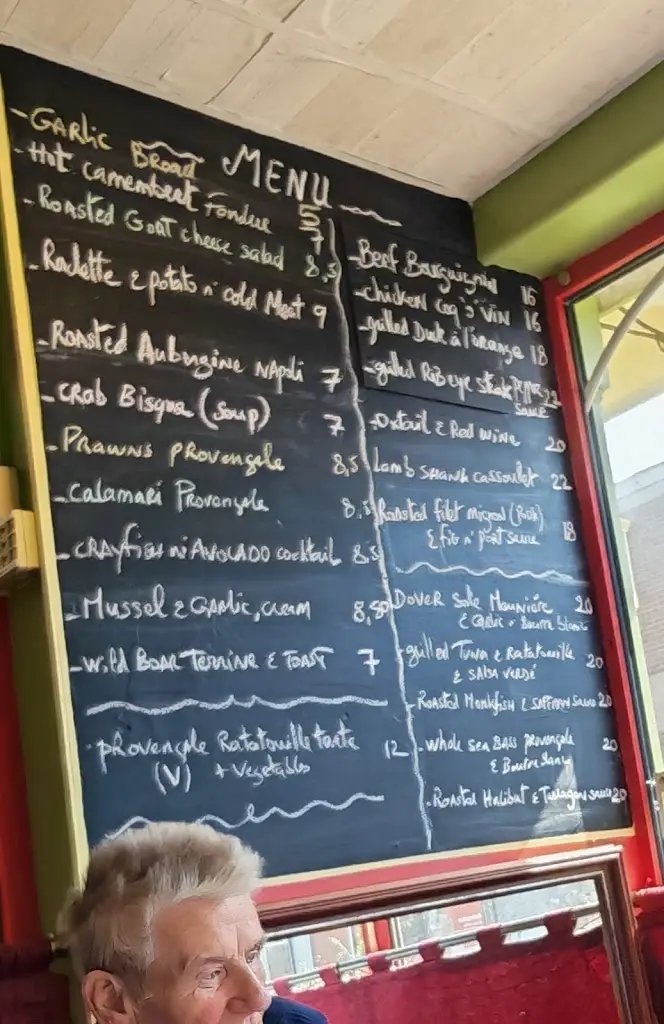 MENU
-Garlic Bread 5
-Hot camembert Fondue 7
-Roasted Goat cheese salad 8,5
-Raclette & potato n' cold Meat 9
-Roasted Aubergine Napoli 7
-Crab Bisque (soup) 7
-Prawns Provençale 8,5
-Calamari Provençale 8,5
-CRAYfish n' AVOCADO cocktail 8,5
-Mussel & Garlic, cream 8,50
-Wild Boar Terrine & Toast 7
-Provençale Ratatouille tarte 12
(V) + Vegetables
-Beef Bourguignon 16
-chicken Coq "o" Vin 16
-grilled Duck à l'orange 18
-grilled Rib eye steak 22
sauce
-Oxtail & Red wine 20
Lamb shank cassoulet 22
Roasted filet mignon (Pork) 18
& fig n' port sauce
Dover Sole Meunière 20
& Garlic
-grilled Tuna & Ratatouille 20
& SALSA VERDÉ
-Roasted Monkfish & SAFFRON Sauce 20
-Whole sea Bass provençale 20
-Roasted Halibut & Tarragon sauce 20